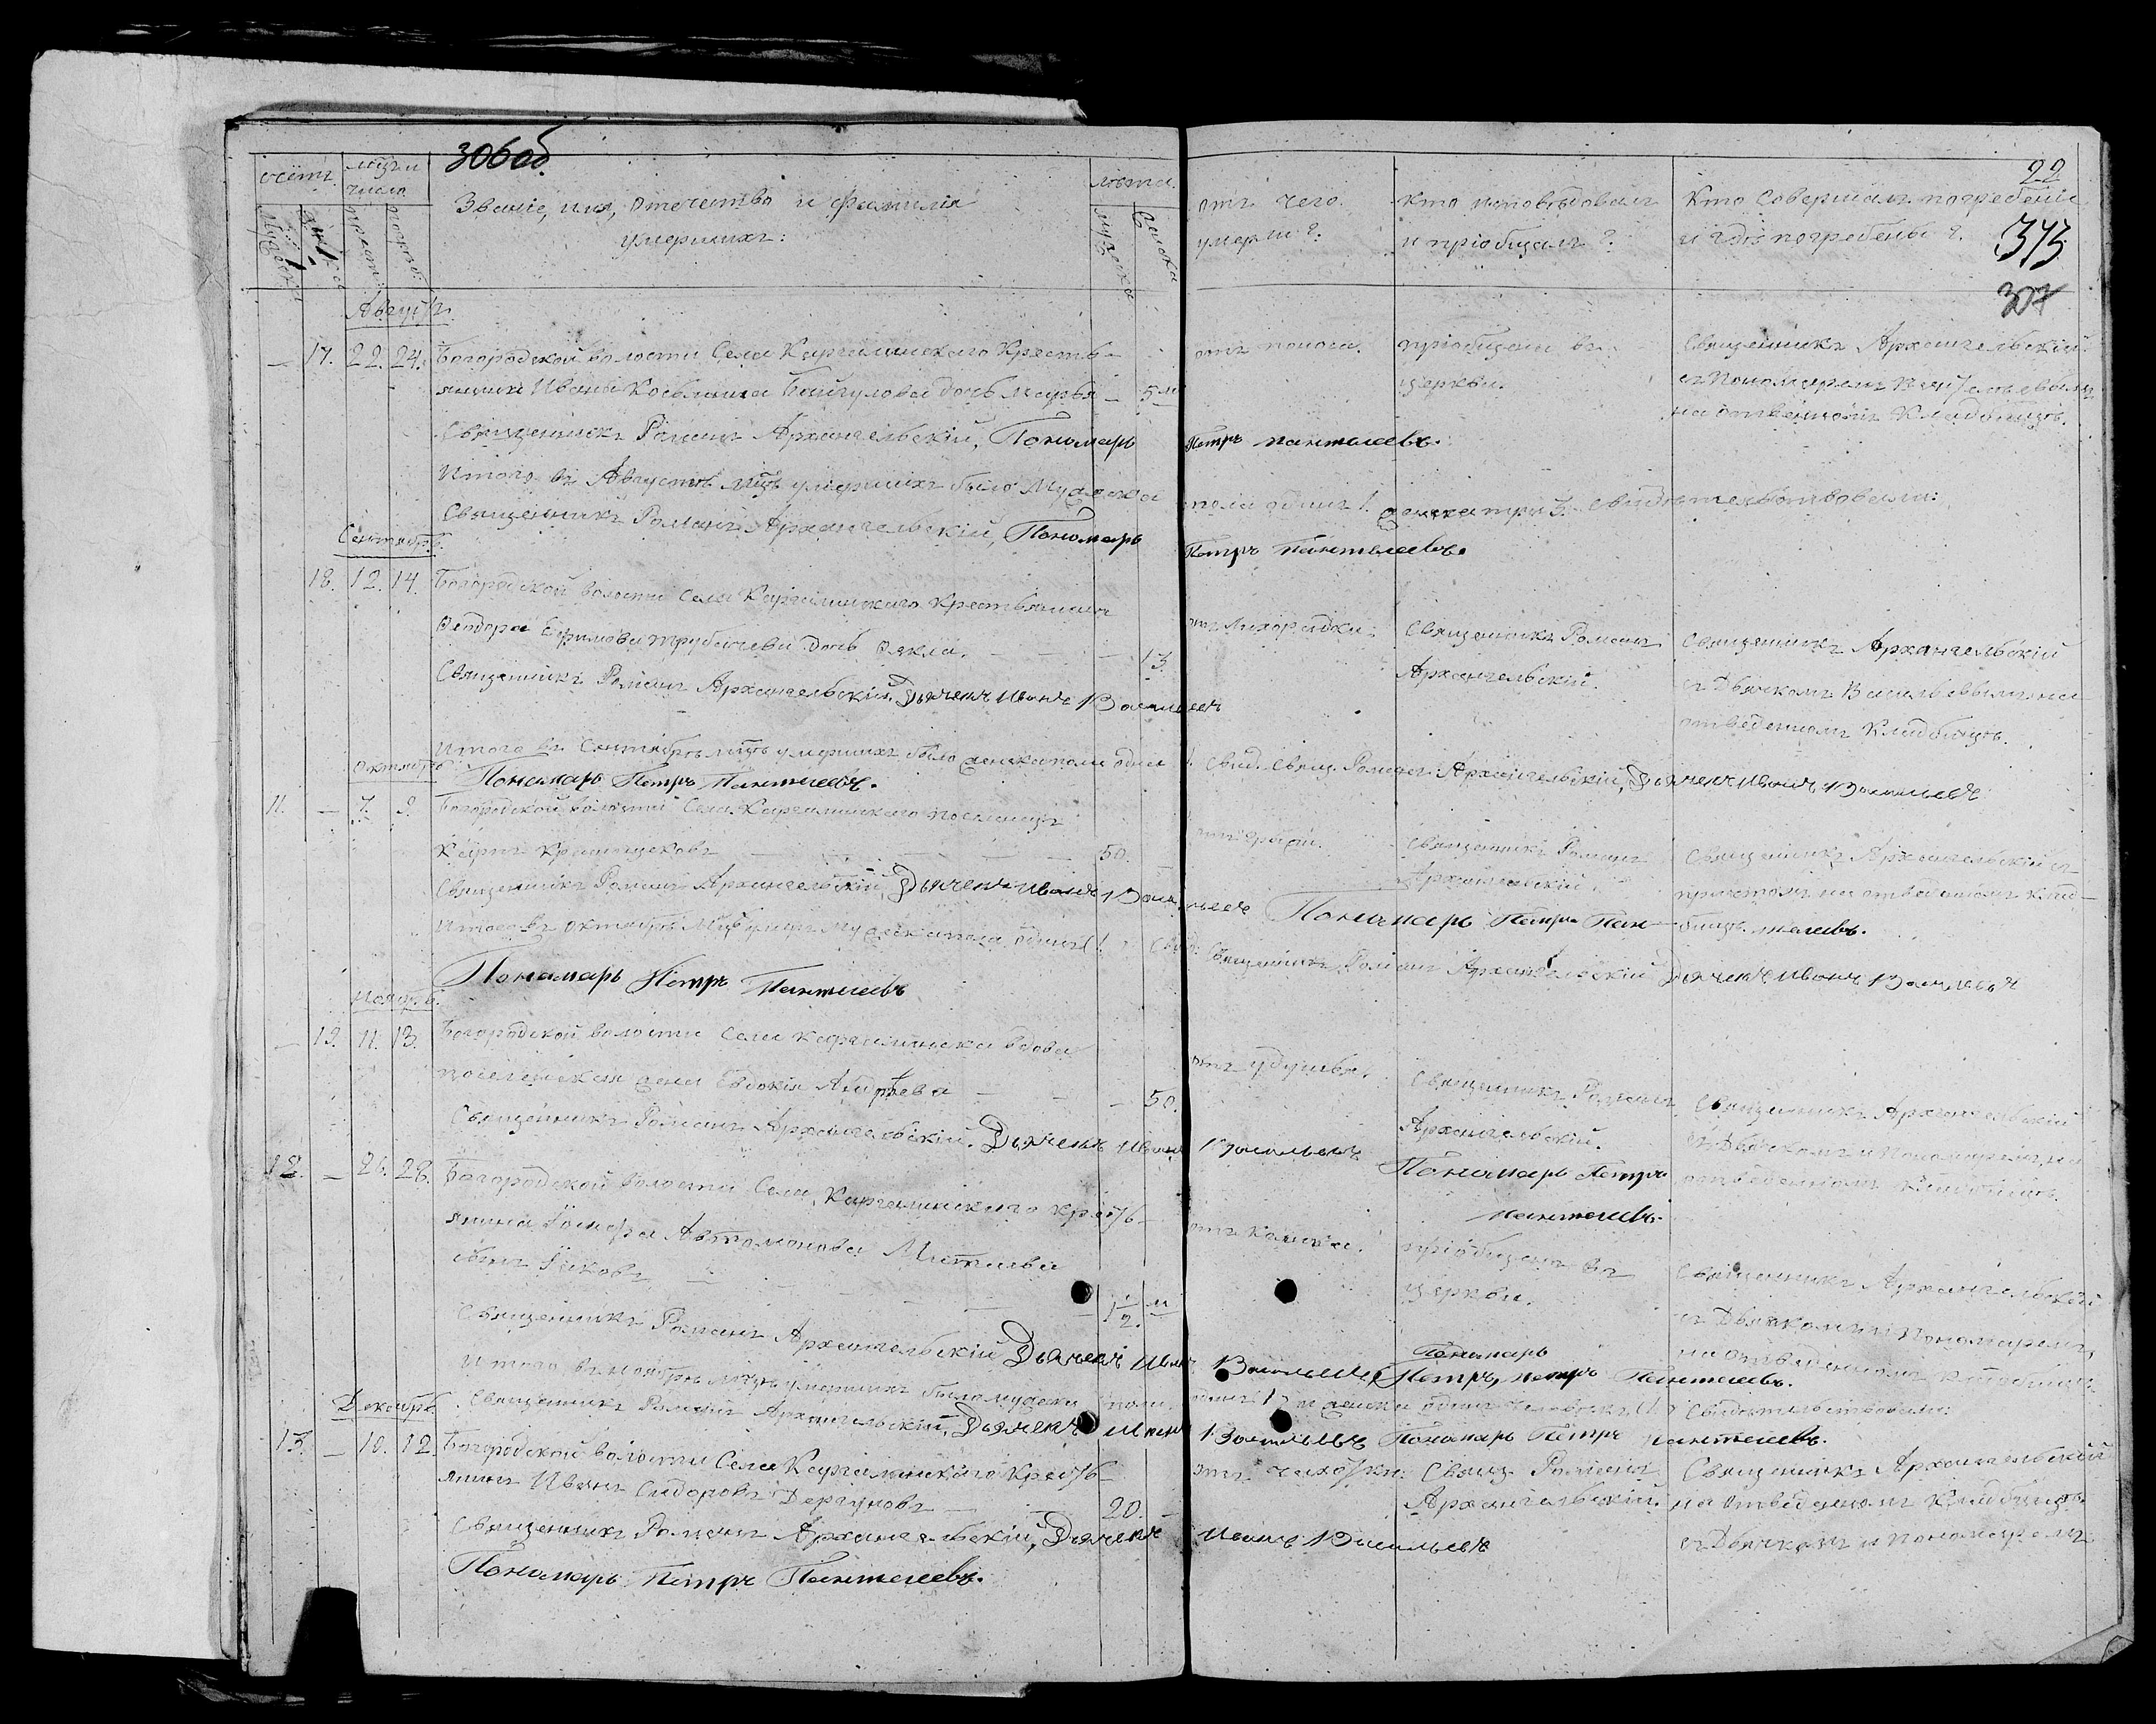 306 об.
22
373
307
Счетъ. Мѣз: и число Званіе, имя, отечество и фамилія умершихъ: Лѣта. отъ чего умерли?: Кто исповѣдовалъ и пріобщалъ?. Кто совершалъ погребеніе и гдѣ погребены?.
Августъ.
— 17. 22. 24. Богородской волости Села Каргалинскаго Кресть-
янина Ивана Дочь Марья — 5 м
отъ поноса.
пріобщена въ
церкви.
Священникъ Архангельскій
съ Пономаремъ Пантелеевымъ
на отведенномъ Кладбищѣ.
Священникъ Романъ Архангельскій, Пономарь Петръ Пантелеевъ.
Итого въ Августѣ мцѣ умершихъ было Мужеска пола одинъ 1. женска три 3. свидѣтельствовали:
Священникъ Романъ Архангельскій, Пономарь Петръ Пантелеевъ.
Сентябрь.
18. 12. 14. Богородской волости Села Каргалинскаго Крестьянина
Ѳеодора Ефимова Трубачева Дочь Ѳекла. — — 13.
отъ Лихорадки.
Священникъ Романъ
Архангельскій.
Священникъ Архангельскій
съ Дьячкомъ Васильевымъ на
отведенномъ Кладбищѣ.
Священникъ Романъ Архангельскій, Дьячекъ Иванъ Васильевъ
Итого въ Сентябрѣ мцѣ умершихъ было женска пола одна 1. Свид. Свящ. Романъ Архангельскій, Дьячекъ Иванъ Васильевъ
Пономарь Петръ Пантелеевъ.
Октябрь
11. — 7. 9. Богородской волости Села Каргалинскаго поселенецъ
Карпъ — — 50.
отъ грыжи.
Священникъ Романъ
Архангельскій.
Священникъ Архангельскій съ
причтомъ на отведенномъ клад-
бищѣ.
Священникъ Романъ Архангельскій, Дьячекъ Иванъ Васильевъ Пономарь Петръ Пантелеевъ.
Итого въ Октябрѣ Мцѣ умер: мужеска пола одинъ (1.) Свид: Священникъ Романъ Архангельскій Дьячекъ Иванъ Васильевъ
Пономарь Петръ Пантелеевъ
Ноябрь.
— 19. 11. 13. Богородской волости Села Каргалинска вдова
поселенская жена Евдокія Андреева — — 50.
отъ удушья.
Священникъ Романъ
Архангельскій.
Священникъ Архангельскій
съ Дьячкомъ и Пономаремъ, на
отведенномъ Кладбищѣ.
Священникъ Романъ Архангельскій. Дьячекъ Иванъ Васильевъ Пономарь Петръ
Пантелеевъ.
12. — 26. 28. Богородской волости Села Каргалинскаго Кресть-
янина Автомонова
сынъ Яковъ — — 1/2. м
отъ кашля.
пріобщенъ въ
церкви.
Священникъ Архангельскій
съ Дьячкомъ и Пономаремъ,
на отведенномъ кладбищѣ.
Священникъ Романъ Архангельскій Дьячекъ Иванъ Васильевъ, Пономарь Петръ, Петръ Пантелеевъ.
Итого въ Ноябрѣ Мцѣ умершихъ было мужеска пола одинъ (1) и женска одинъ человѣкъ (1.) Свидѣтельствовали:
Священникъ Романъ Архангельскій, Дьячекъ Иванъ Васильевъ Пономарь Петръ Пантелеевъ.
Декабрь.
13. — 10. 12 Богородской волости Села Каргалинскаго Кресть-
янинъ Иванъ Сидоровъ Дергуновъ — 20. —
отъ чахотки.
Свящ. Романъ
Архангельскій.
Священникъ Архангельскій
на отведенномъ Кладбищѣ.
съ Дьячкомъ и пономаремъ
Священникъ Романъ Архангельскій, Дьячекъ Иванъ Васильевъ
Пономарь Петръ Пантелеевъ.